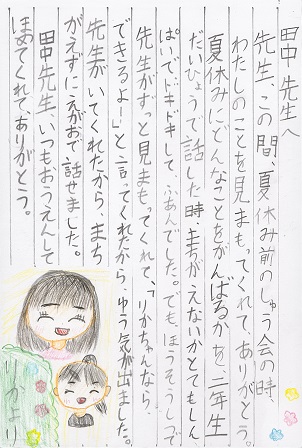 田中先生へ
先生、この間、夏休み前のしゅう会の時、
わたしのことを見まもってくれて、ありがとう。
夏休みにどんなことをがんばるかを、二年生
だいひょうで話した時、まちがえないかとてもしん
ぱいでドキドキして、ふあんでした。でも、ほうそうしつで
先生がずっと見まもってくれて、「りかちゃんなら、
できるよー」と言ってくれたから、ゆう気が出ました。
先生がいてくれたから、まち
がえずにえがおで話せました。
田中先生、いつもおうえんして
ほめてくれて、ありがとう。
りかより